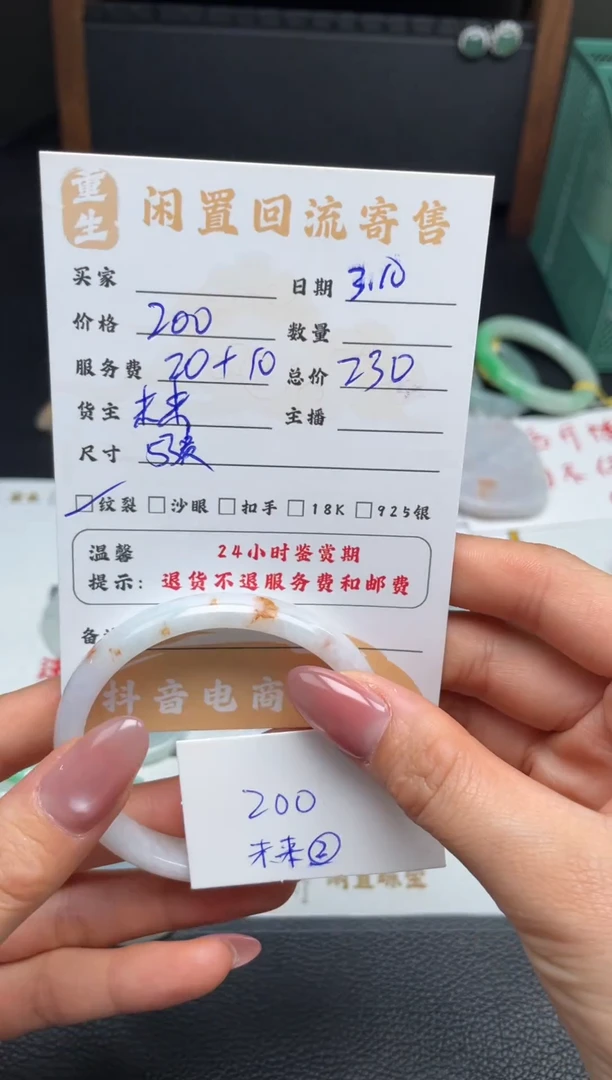 重生 闲置回流寄售
买家 日期 3.10
价格 200 数量
服务费 20+10 总价 230
货主 未来 主播
尺寸 53
□纹裂 □沙眼 □扣手 □18K □925银
温馨 24小时鉴赏期
提示: 退货不退服务费和邮费
备
抖音电商
200
未来②